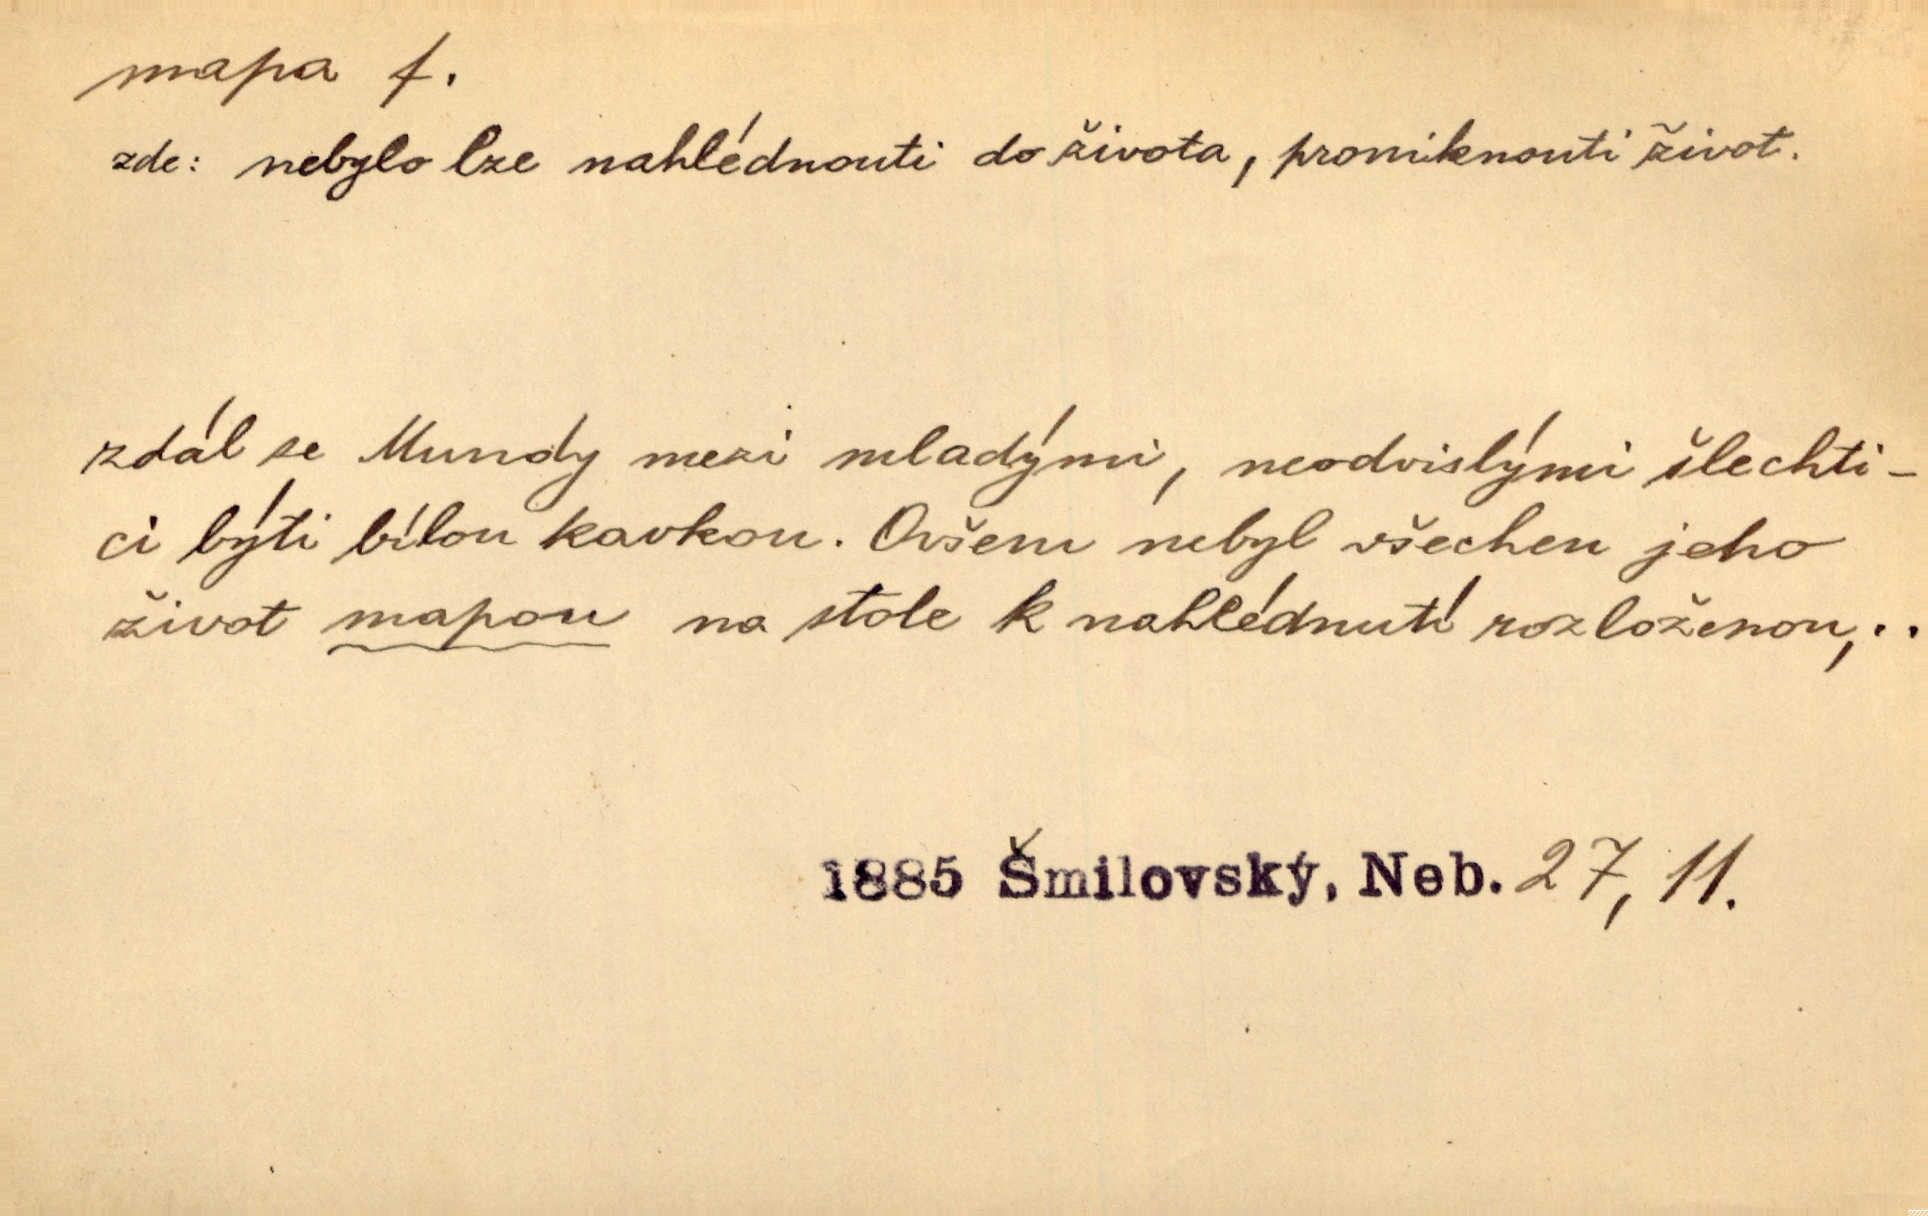 mapa f.
zde: nebylo lze nahlédnouti do života, proniknouti život.
zdál se Mundy mezi mladými, neodvislými šlechti-
ci býti bílou kavkou. Ovšem nebyl všechen jeho
život mapou na stole k nahlédnutí rozloženou,..
1885 Šmilovský, Neb. 27, 11.